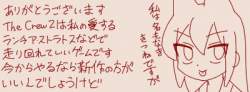 ありがとうございます
The Crew2は私の愛する
ランチアストラトスなどで
走り回れていいゲームです
今からやるなら新作の方が
いいんでしょうけど
私は名もなき
きつねですが